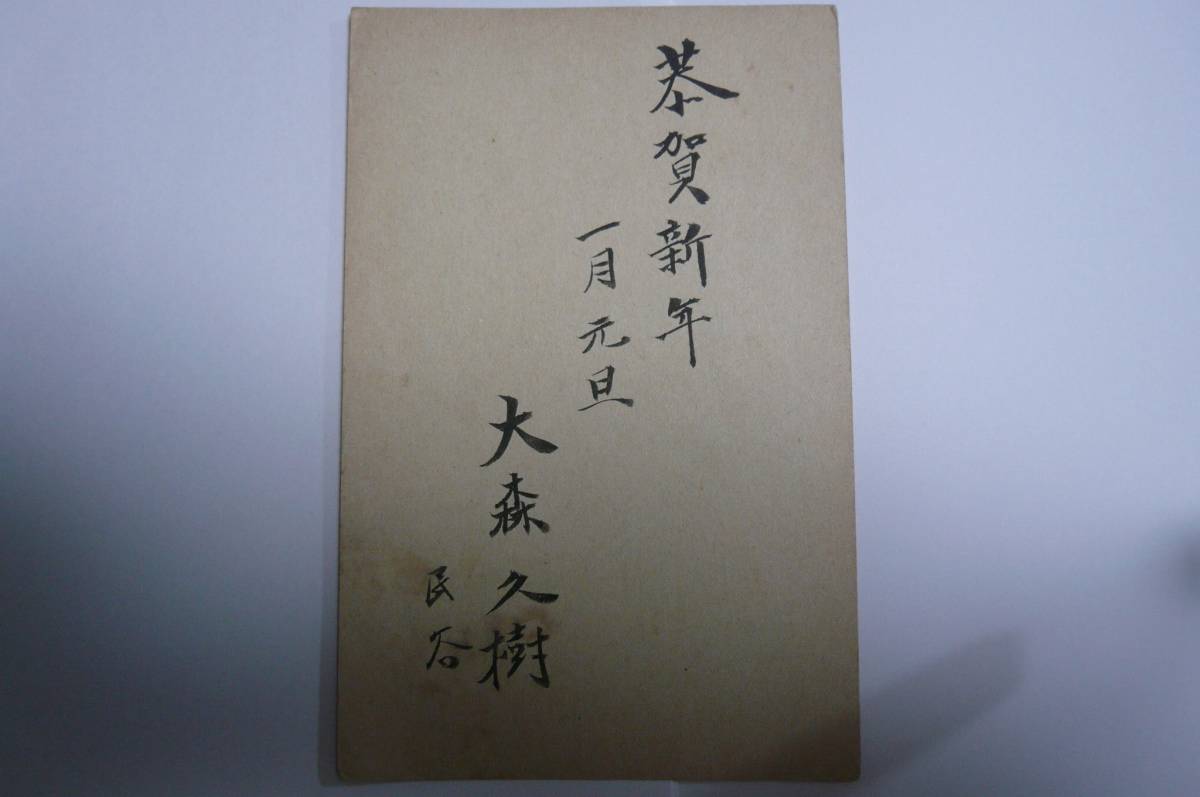 恭賀新年
一月元旦
大森久樹
民谷